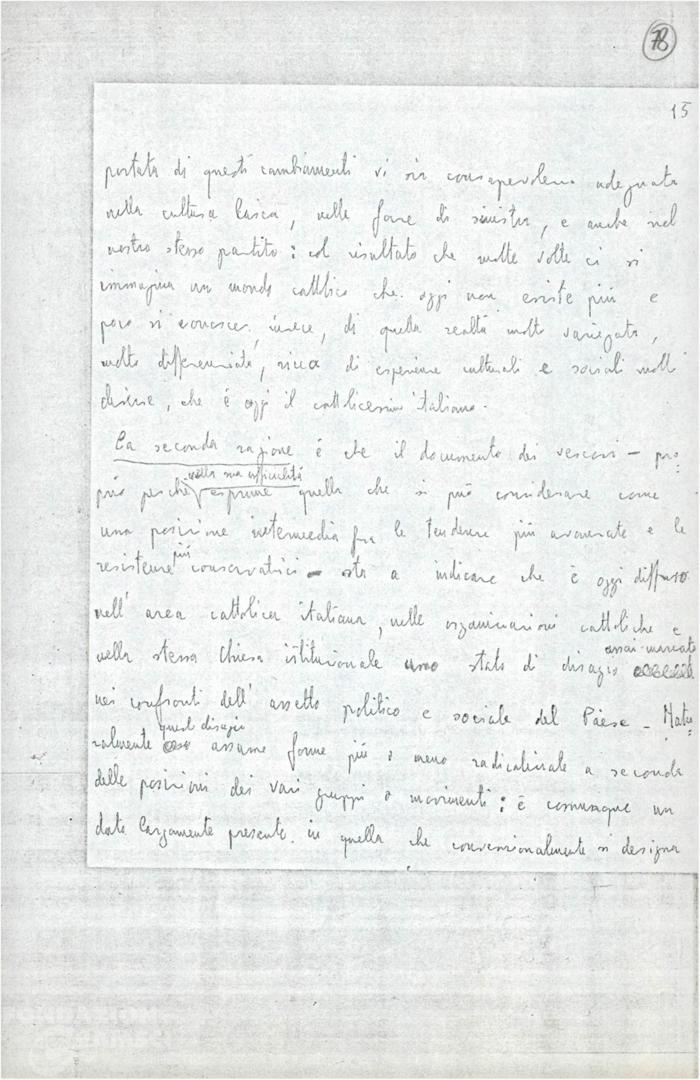 78
15
portata di questi cambiamenti vi sia consapevolezza adeguata
nella cultura laica, nelle forze di sinistra, e anche nel
nostro stesso partito: col risultato che molte volte ci si
immagina un mondo cattolico che oggi non esiste più e
poco si conosce, invece, di quella realtà molto variegata,
molto differenziata, ricca di esperienze culturali e sociali molto
diverse, che è oggi il cattolicesimo italiano.
La seconda ragione è che il documento dei vescovi – pro=
prio perchè nella sua ufficialità esprime quella che si può considerare come
una posizione intermedia fra le tendenze più avanzate e le
resistenze più conservatrici – sta a indicare che è oggi diffuso
nell'area cattolica italiana, nelle organizzazioni cattoliche e
nella stessa Chiesa istituzionale uno stato di disagio assai marcato
nei confronti dell'assetto politico e sociale del Paese. Natu=
ralmente questo disagio assume forme più o meno radicalizzate a seconda
delle posizioni dei vari gruppi o movimenti: è comunque un
dato largamente presente in quella che convenzionalmente si designa